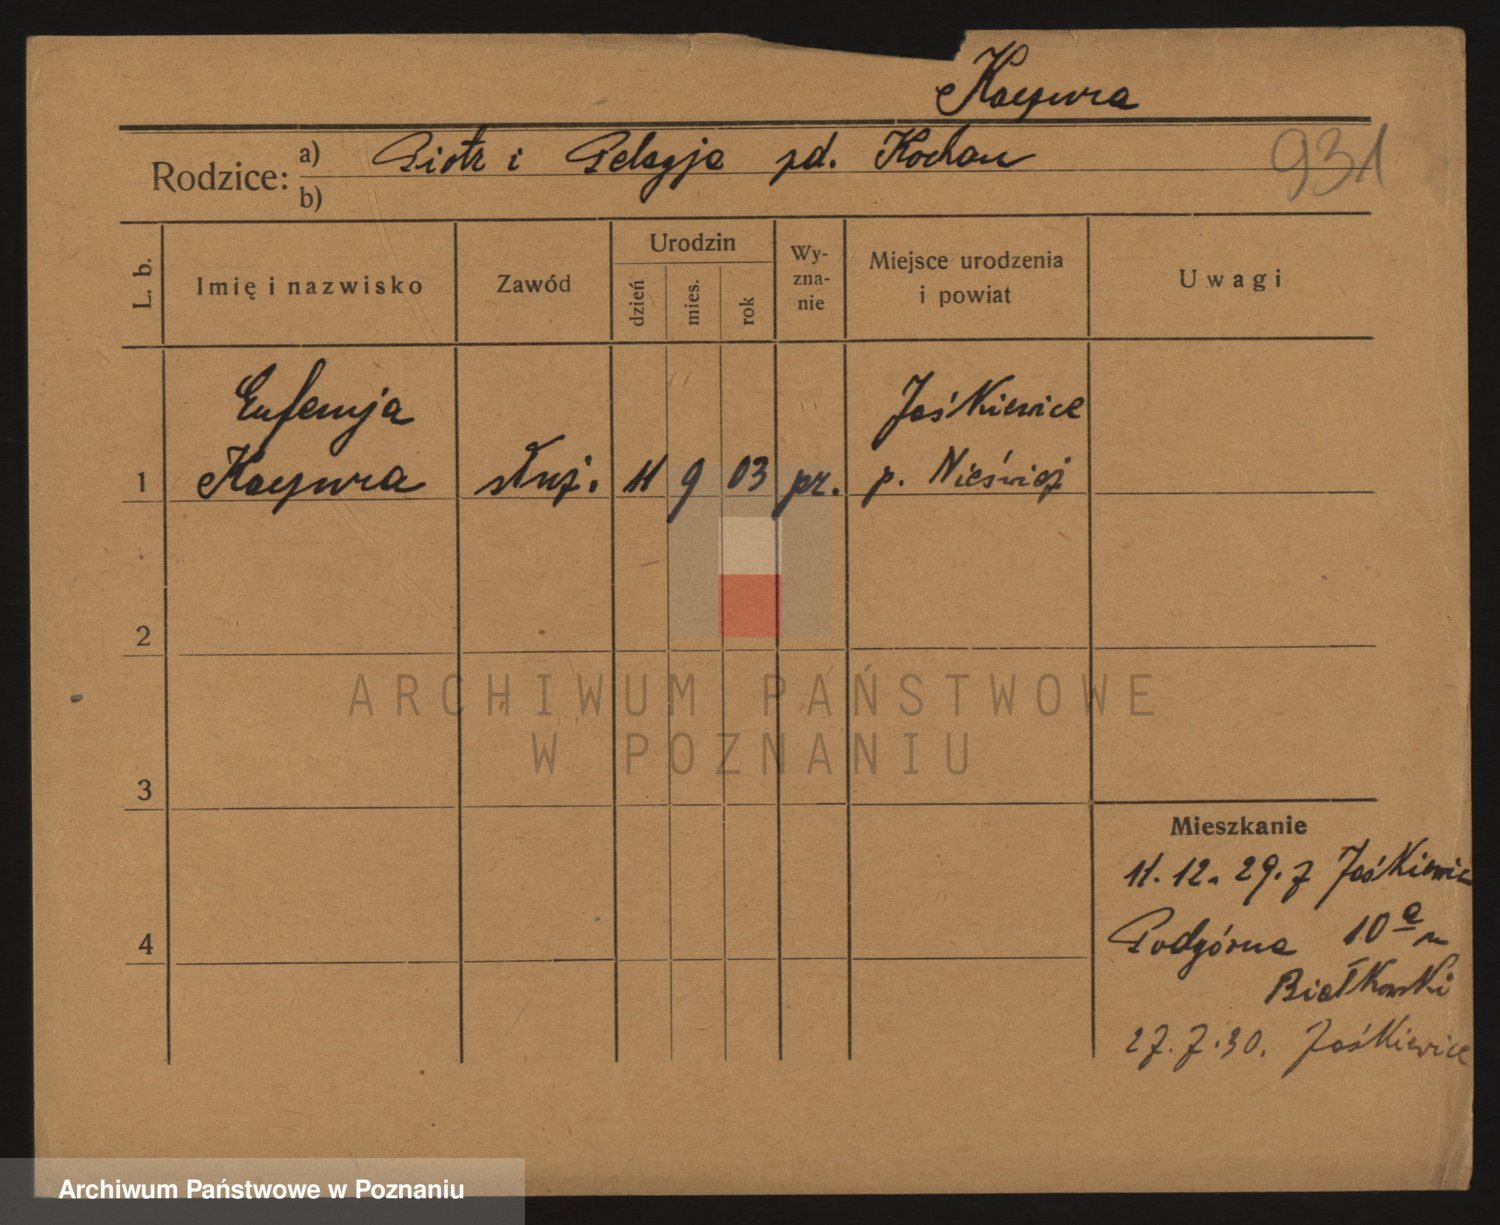 Kacywra
Rodzice: a) Piotr i Pelagja zd. Kochan
b)
931
L. b.
Imię i nazwisko
Zawód
Urodzin
dzień
mies.
rok
Wy-
zna-
nie
Miejsce urodzenia
i powiat
Uwagi
Eufemja
Jaśkiewice
1 Kacywra służ. 11 9 03 pr. p. Nieśwież
2
3
4
Mieszkanie
11.12.29. z Jaśkiewic
Podgórna 10a
Białkowski
27.7.30. Jaśkiewice
ARCHIWUM PAŃSTWOWE
W POZNANIU
Archiwum Państwowe w Poznaniu